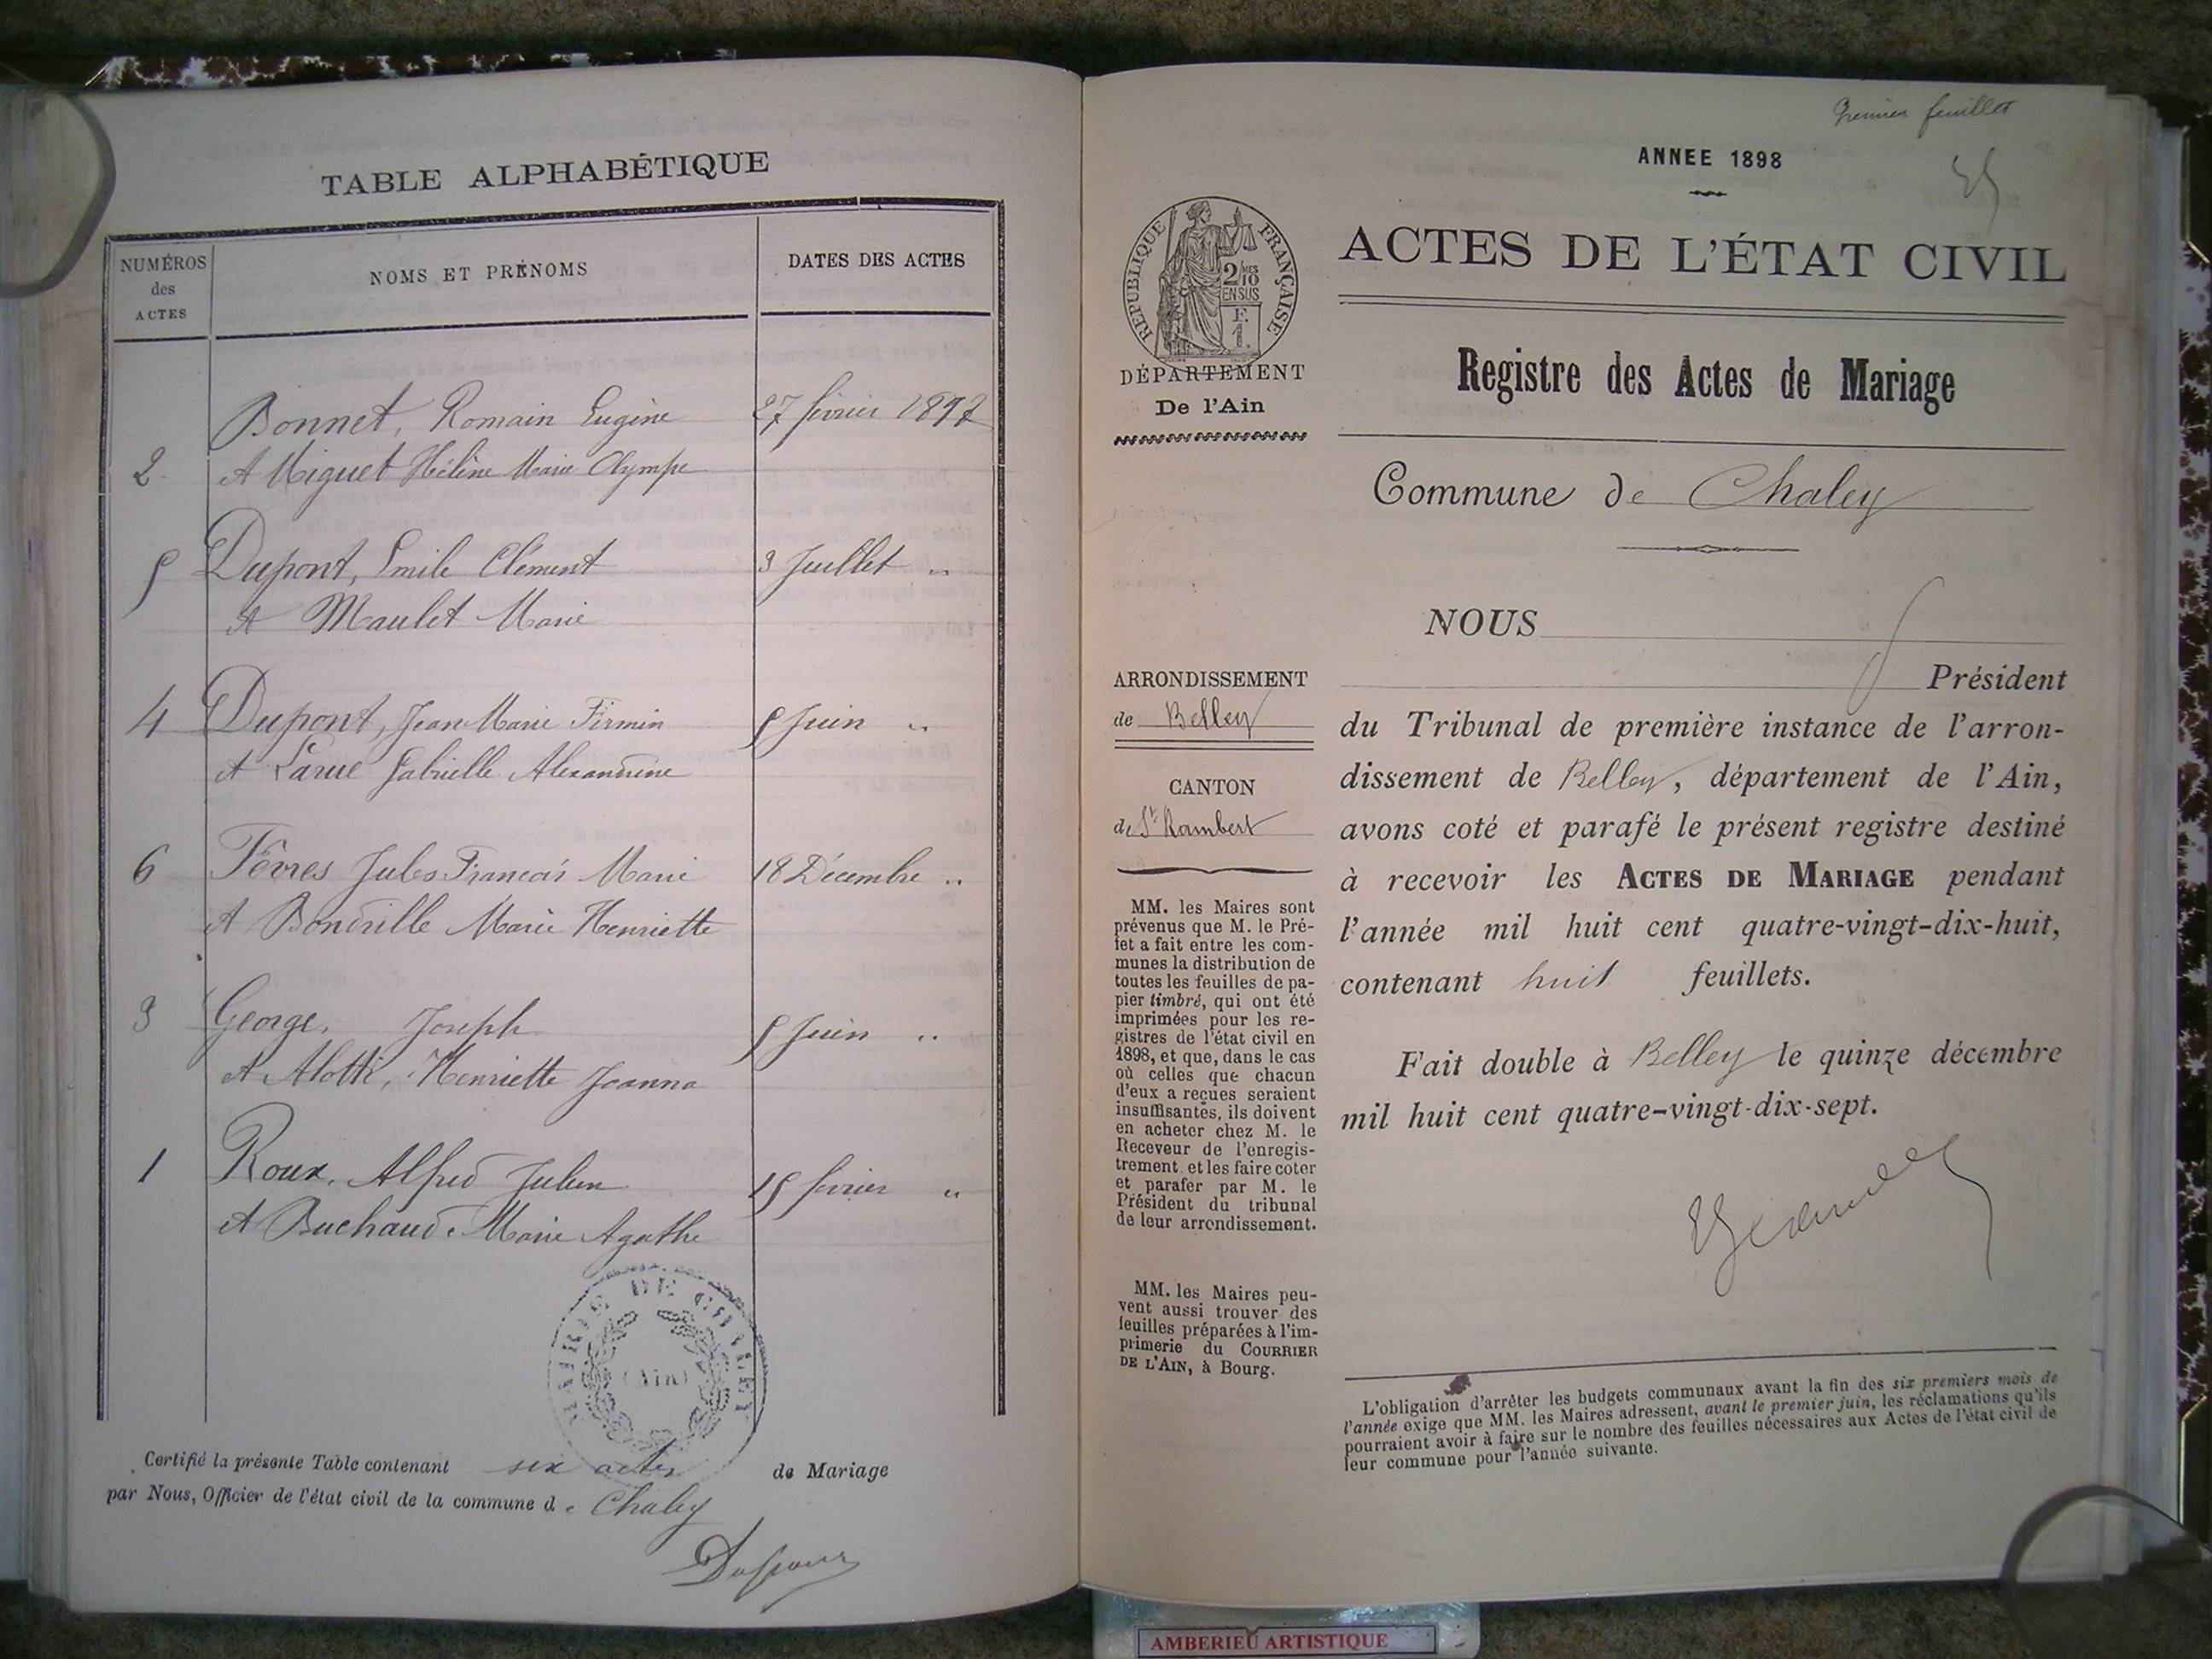 TABLE ALPHABÉTIQUE
NUMÉROS
des
ACTES
NOMS ET PRÉNOMS
DATES DES ACTES
Bonnet, Romain Eugène 27 février 1897
2 et Miguet Hélène Marie Olympe
5 Dupont, Emile Clément 3 Juillet "
et Maulet Marie
4 Dupont, Jean Marie Firmin 5 Juin "
et Larue Gabrielle Alexandrine
6 Fèvres Jules François Marie 18 Décembre "
et Bondrille Marie Henriette
3 George, Joseph 5 Juin "
et Alotti, Henriette Joanna
1 Roux, Alfred Julien 15 février "
et Buchaud Marie Agathe
MAIRIE DE
(Ain)
Certifié la présente Table contenant six actes de Mariage
par Nous, Officier de l'état civil de la commune de Chaley
Premier feuillet
ANNEE 1898
RÉPUBLIQUE FRANÇAISE
2/10 MES
EN SUS
F.
1.
ACTES DE L'ÉTAT CIVIL
DÉPARTEMENT
De l'Ain
Registre des Actes de Mariage
Commune de Chaley
NOUS
Président
du Tribunal de première instance de l'arron-
dissement de Belley, département de l'Ain,
avons coté et parafé le présent registre destiné
à recevoir les ACTES DE MARIAGE pendant
l'année mil huit cent quatre-vingt-dix-huit,
contenant huit feuillets.
Fait double à Belley le quinze décembre
mil huit cent quatre-vingt-dix-sept.
ARRONDISSEMENT
de Belley
CANTON
de St Rambert
MM. les Maires sont
prévenus que M. le Pré-
fet a fait entre les com-
munes la distribution de
toutes les feuilles de pa-
pier timbré, qui ont été
imprimées pour les re-
gistres de l'état civil en
1898, et que, dans le cas
où celles que chacun
d'eux a reçues seraient
insuffisantes, ils doivent
en acheter chez M. le
Receveur de l'enregis-
trement, et les faire coter
et parafer par M. le
Président du tribunal
de leur arrondissement.
MM. les Maires peu-
vent aussi trouver des
feuilles préparées à l'im-
primerie du COURRIER
DE L'AIN, à Bourg.
L'obligation d'arrêter les budgets communaux avant la fin des six premiers mois de
l'année exige que MM. les Maires adressent, avant le premier juin, les réclamations qu'ils
pourraient avoir à faire sur le nombre des feuilles nécessaires aux Actes de l'état civil de
leur commune pour l'année suivante.
AMBERIEU ARTISTIQUE